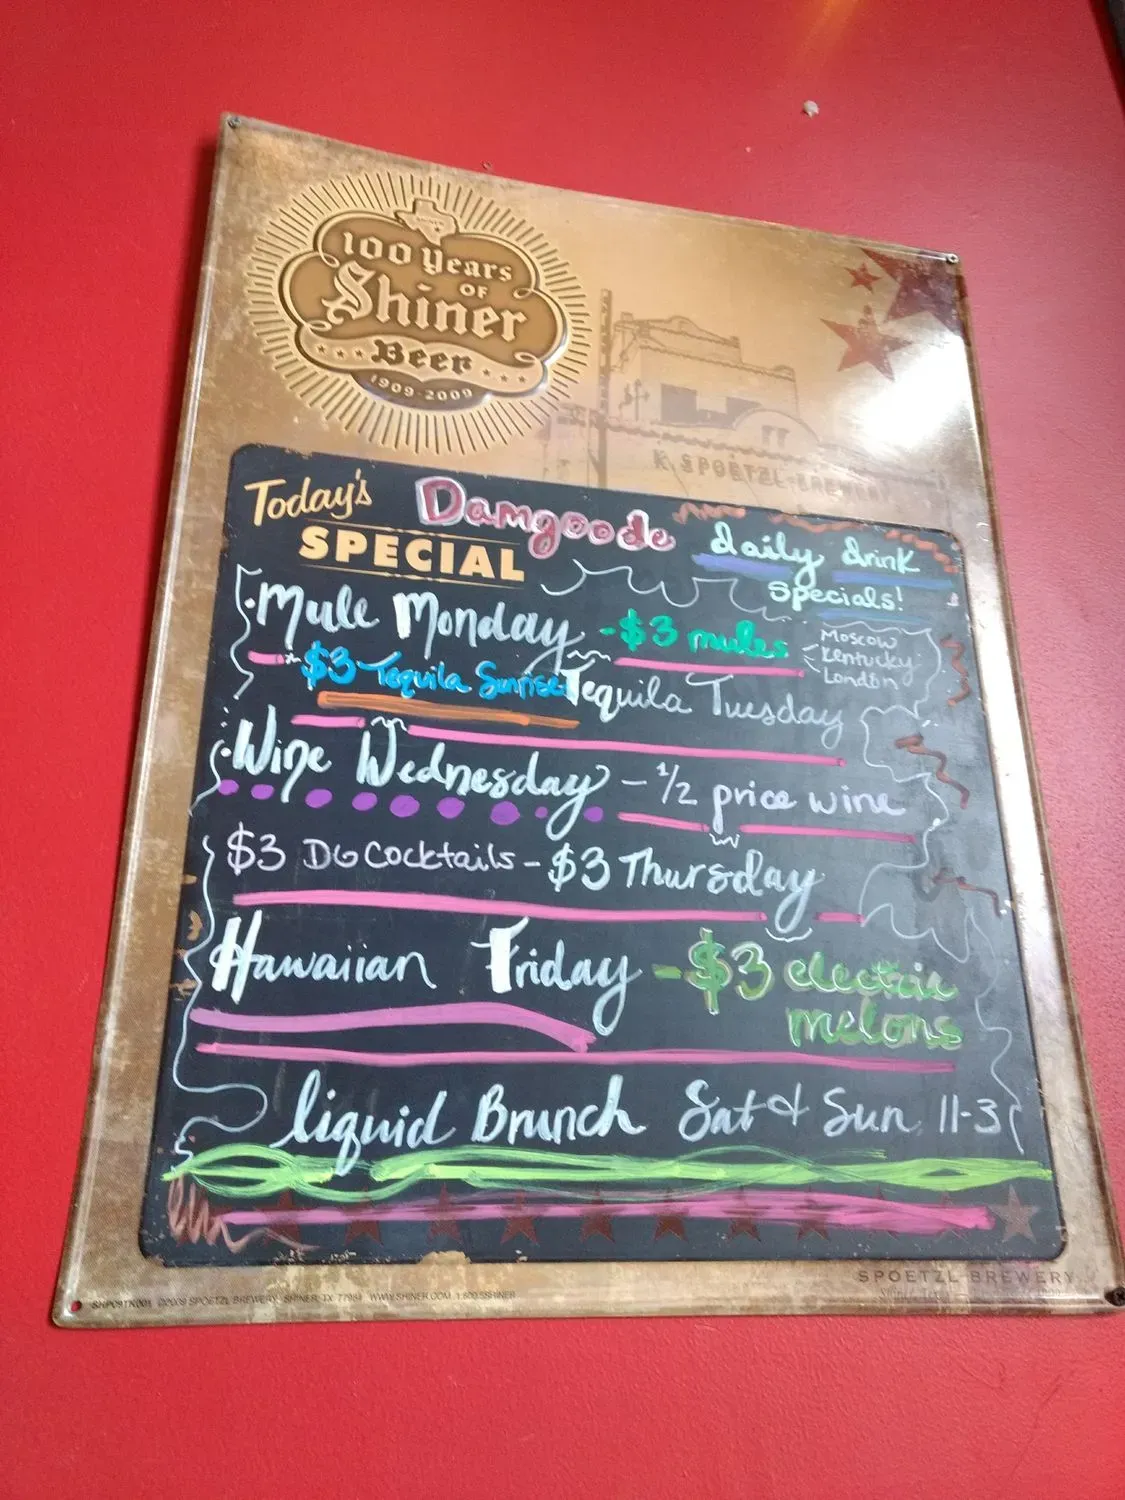 100 Years
OF
Shiner
Beer
1909-2009
K. SPOETZL BREWERY
Today's
SPECIAL
Damgoode daily drink
Specials!
Mule Monday - $3 mules
Moscow
Kentucky
London
$3 Tequila Sunrise Tequila Tuesday
Wine Wednesday - 1/2 price wine
$3 DG Cocktails - $3 Thursday
Hawaiian Friday - $3 electric
melons
liquid Brunch Sat & Sun 11-3
SPOETZL BREWERY
SHP09TK001 ©2009 SPOETZL BREWERY, SHINER, TX 77984 WWW.SHINER.COM